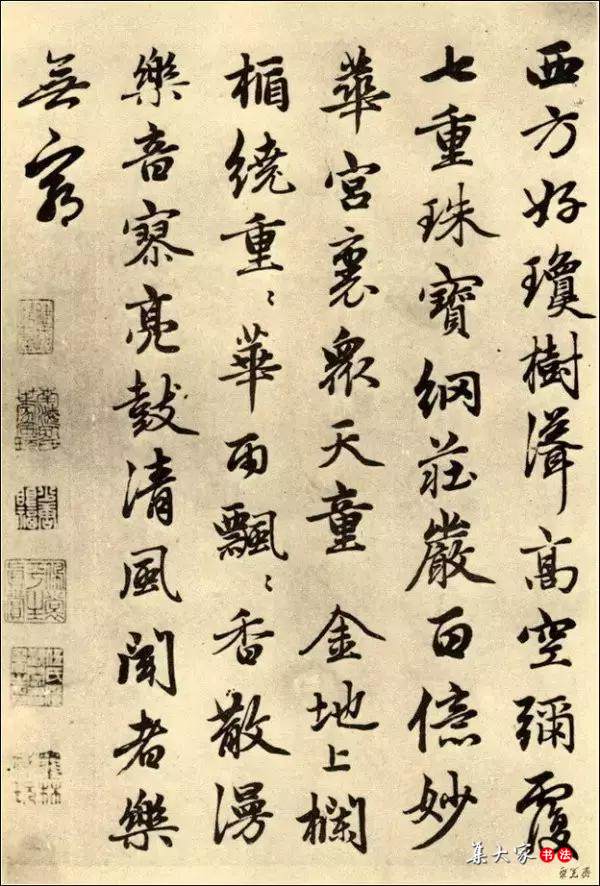 西方好瓊樹聳高空彌覆
七重珠寶網莊嚴百億妙
華宮裏衆天童 金地上欄
楯繞重〻華雨飄〻香散漫
樂音寥亮鼓清風聞者樂
無窮
集大家书法